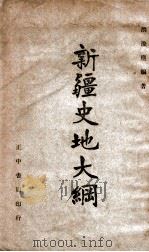 洪滌塵編著
新疆史地大綱
正中書局印行